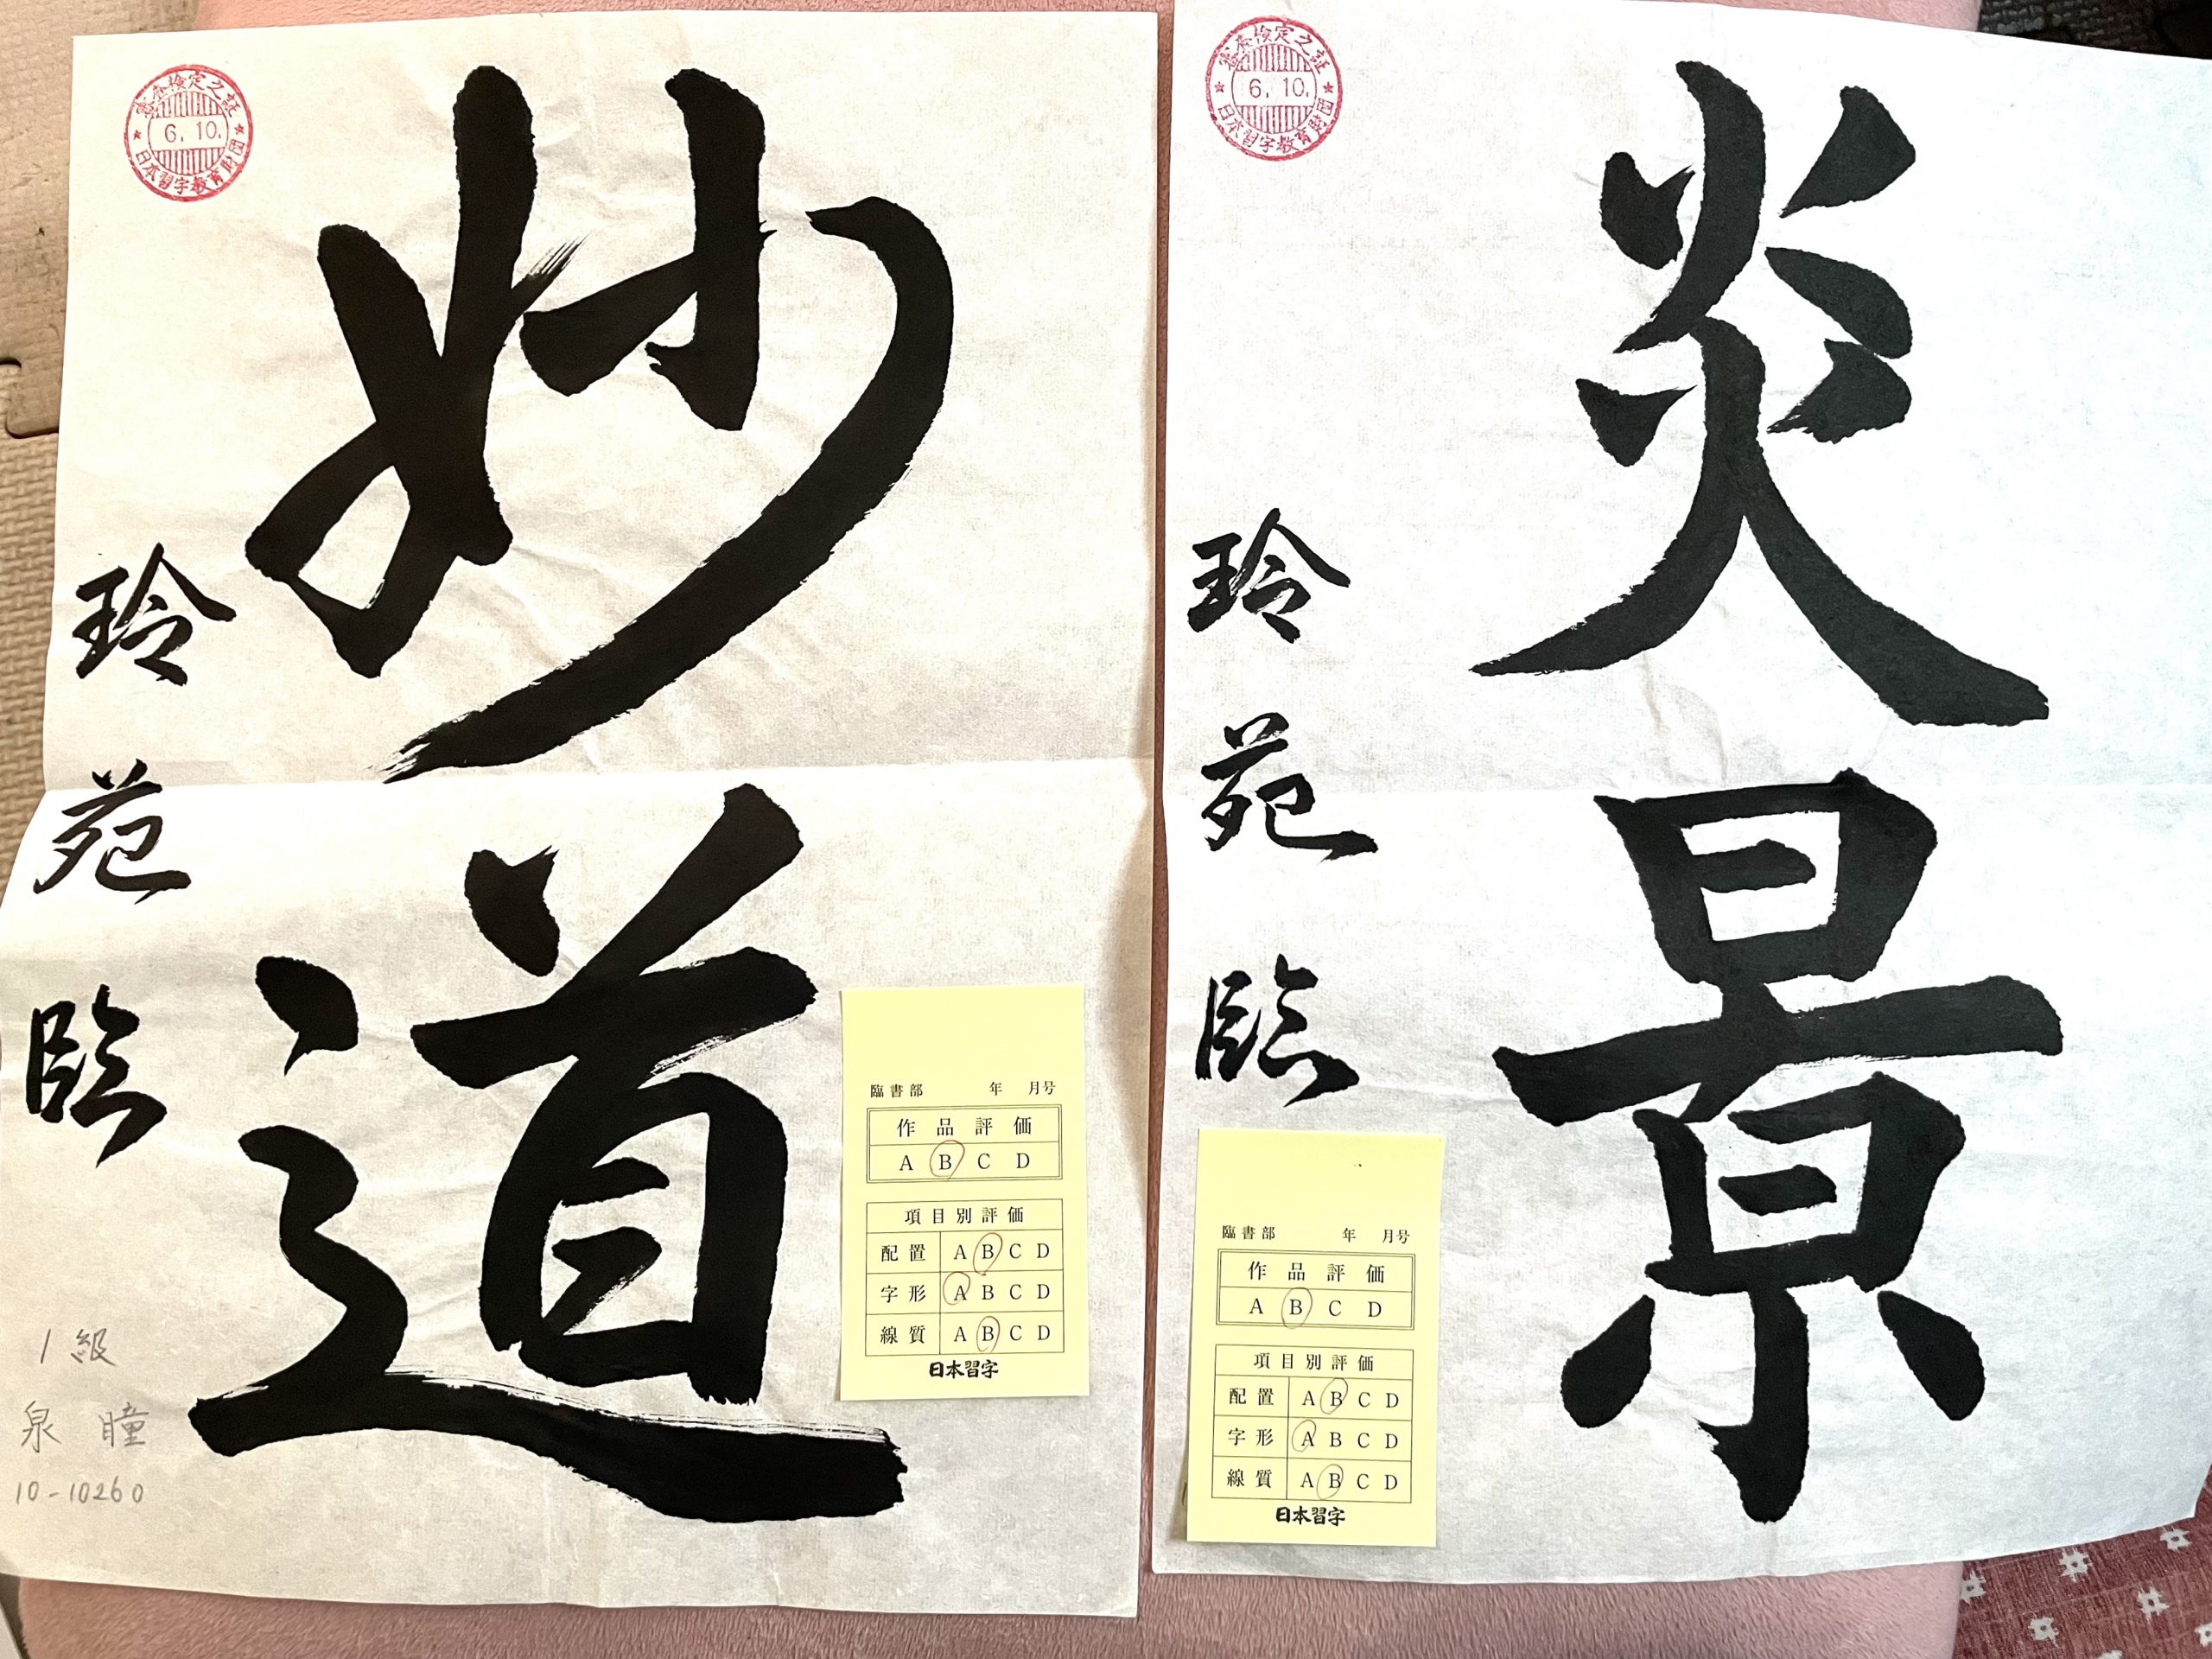 妙道
玲苑臨
1級
泉 瞳
10-10260
審査検定之証
6.10.
日本習字教育財団
臨書部 年 月号
作品評価
A B C D
項目別評価
配置 A B C D
字形 A B C D
線質 A B C D
日本習字
炎景
玲苑臨
審査検定之証
6.10.
日本習字教育財団
臨書部 年 月号
作品評価
A B C D
項目別評価
配置 A B C D
字形 A B C D
線質 A B C D
日本習字